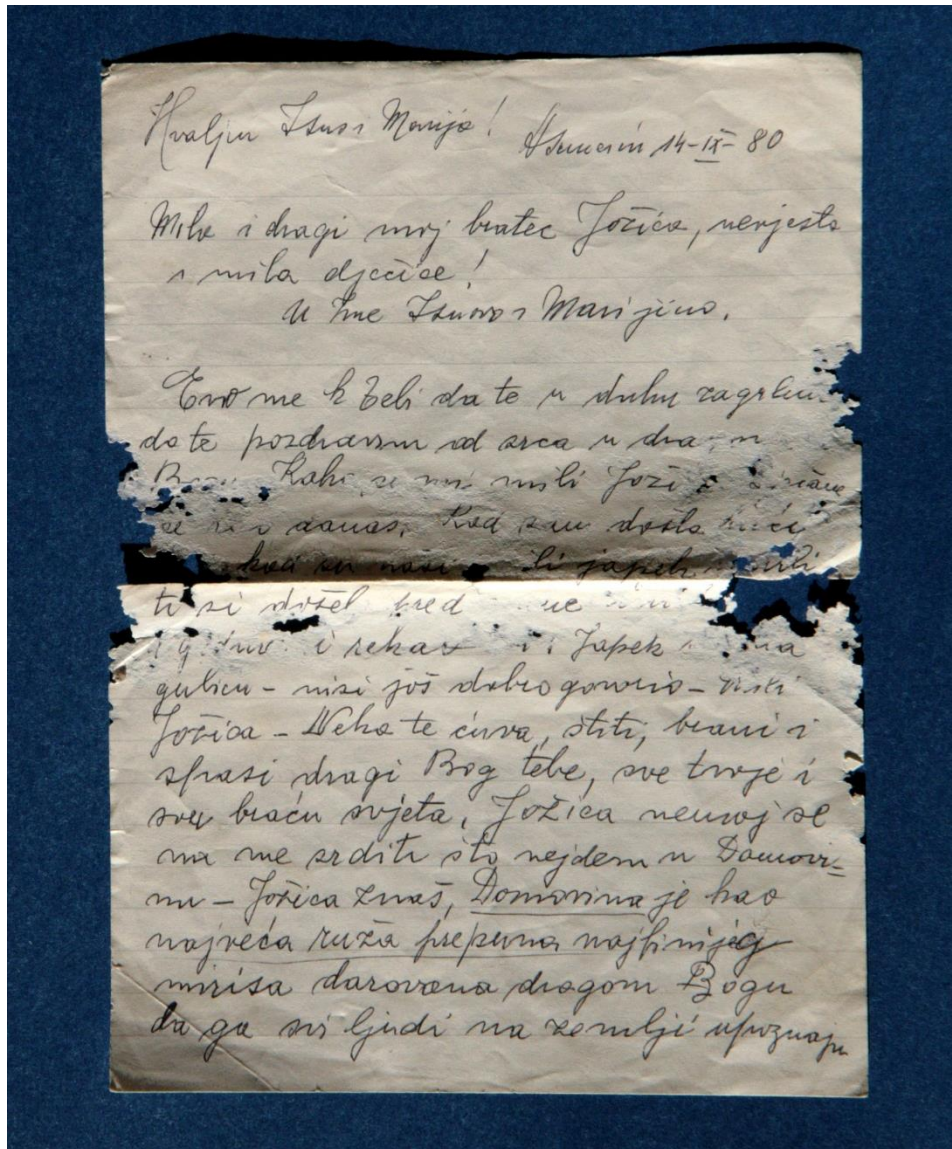 Hvaljen Isus i Marija!
Asuncion 14-IX-80
Mili i dragi moj bratec Jožica, nevjesta
i mila dječice!
U Ime Isusovo i Marijino.
Evo me k Tebi da te u duhu zagrlim
da te pozdravim od srca u
Kako se mi mili Joži
danas. Kad sam došla kući
kad su naši japek
ti si došel pred
i rekao Japek
gubicu - nisi još dobro govorio -
Jožica - Neka te čuva, štiti, brani i
spasi dragi Bog tebe, sve tvoje i
svu braću svjeta. Jožica nemoj se
na me srditi što nejdem u Domovi=
nu - Jožica znaš, Domovina je kao
najveća ruža prepuna najfinijeg
mirisa darovana dragom Bogu
da ga svi ljudi na zemlji upoznaju